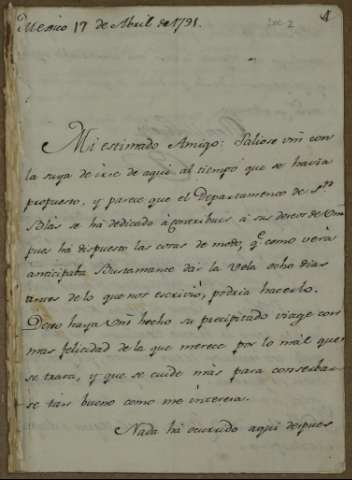 Mexico 17 de Abril de 1791.
Doc 2
1
Mi estimado Amigo: Saliose Vm con
la suya de irse de aqui al tiempo que se havia
propuesto, y parece que el Departamento de Sn
Blas se há dedicado á contribuir á sus deseos de Vm
pues há dispuesto las cosas de modo, qe como verá
anticipaba Bustamante dar la Vela ocho dias
antes de lo que nos escrivió, podria hacerlo.
Deseo haya Vm hecho su precipitado viage con
mas felicidad de la que merece por lo mál que
se trata, y que se cuide más para conserbar
se tan bueno como me interesa.
Nada há ocurrido aqui despues